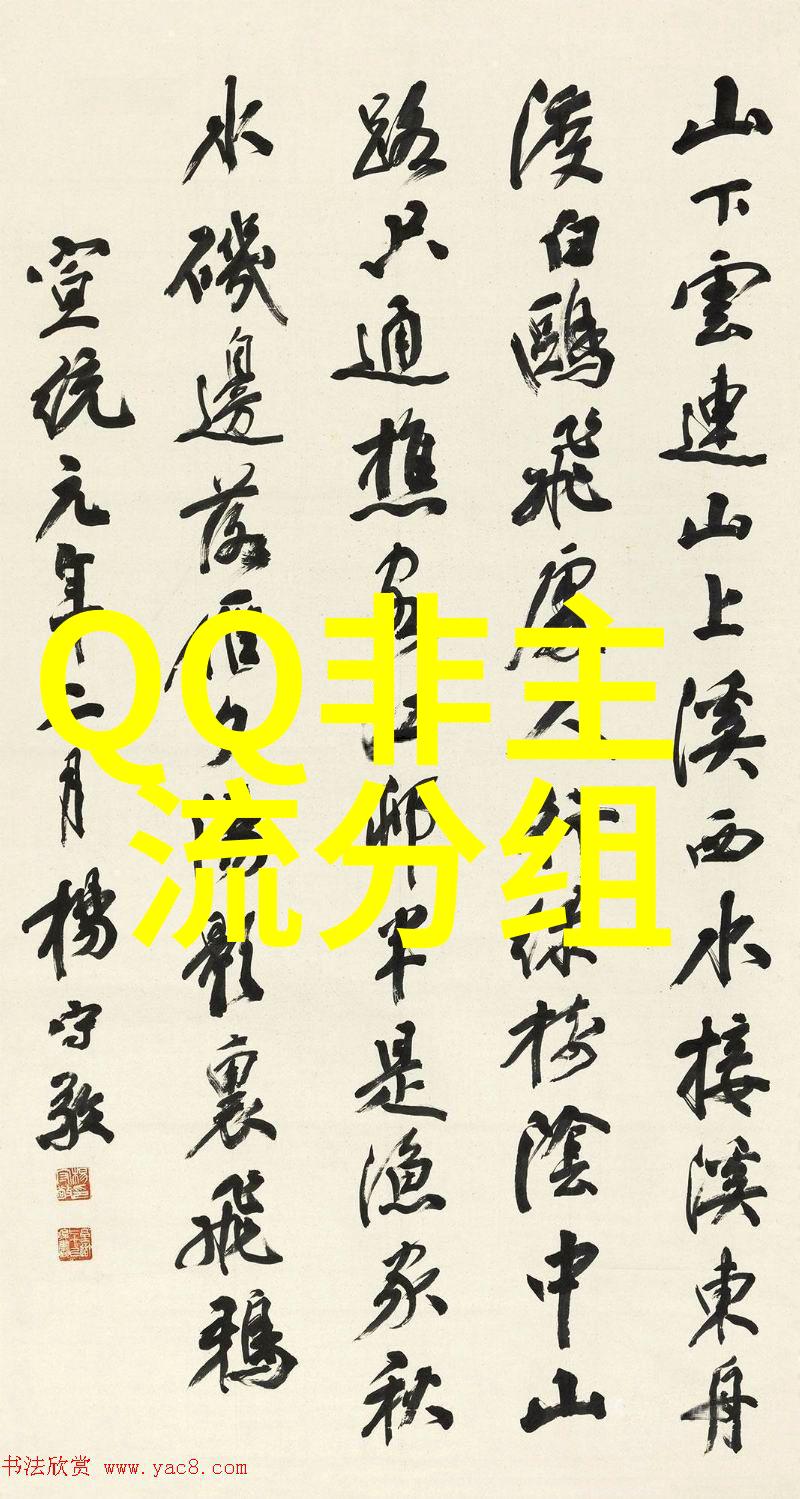 山下雲連山上溪西水接溪東舟
渡白鷗飛處人行綠樹陰中山
路只通樵客江邨半是漁家秋
水磯邊落雁夕陽影裏飛鴉
宣統元年二月楊守敬
QQ非主
流分组
书法欣赏 www.yac8.com